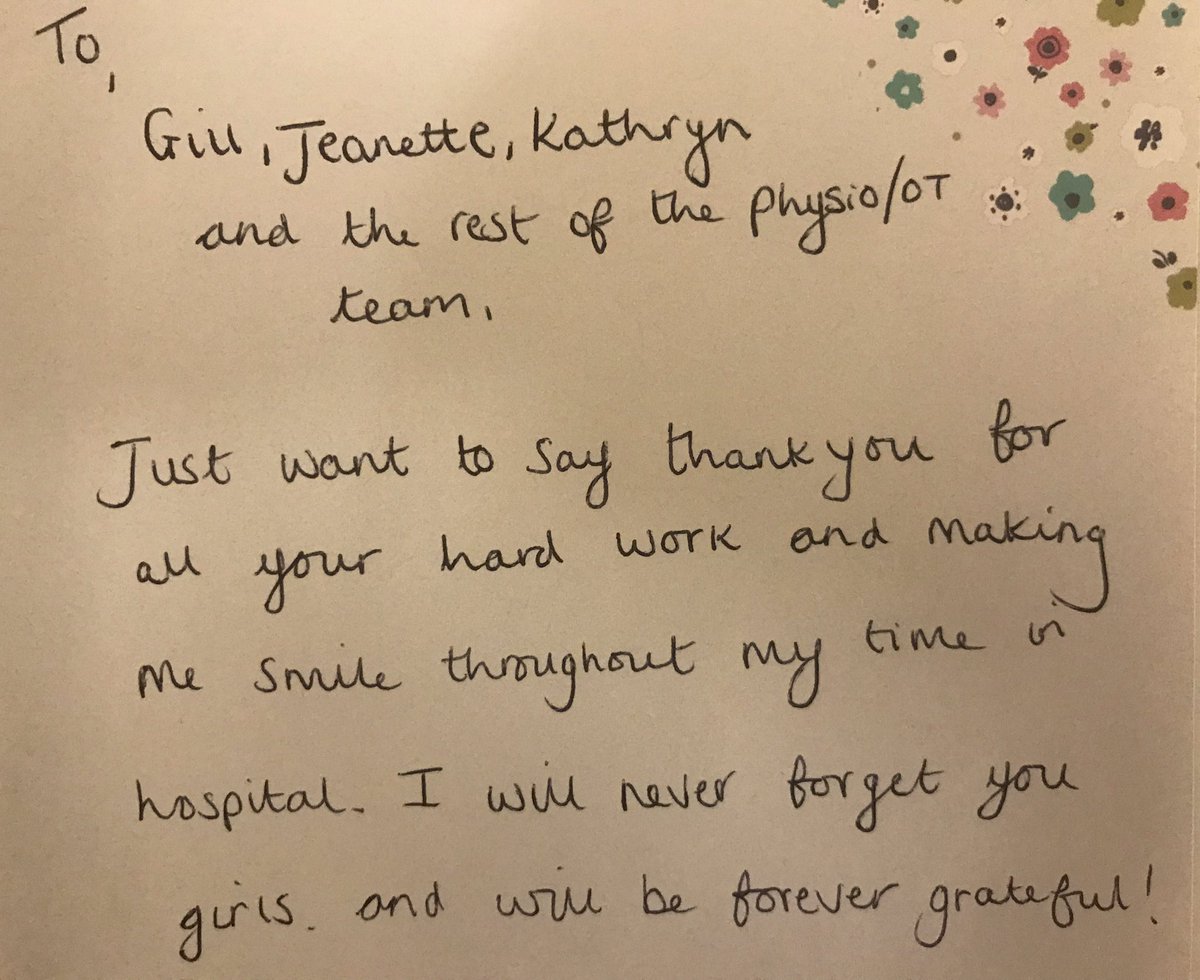 To,
Gill, Jeanette, Kathryn
and the rest of the physio/OT
team.
Just want to say thankyou for
all your hard work and making
me smile throughout my time in
hospital. I will never forget you
girls. and will be forever grateful!